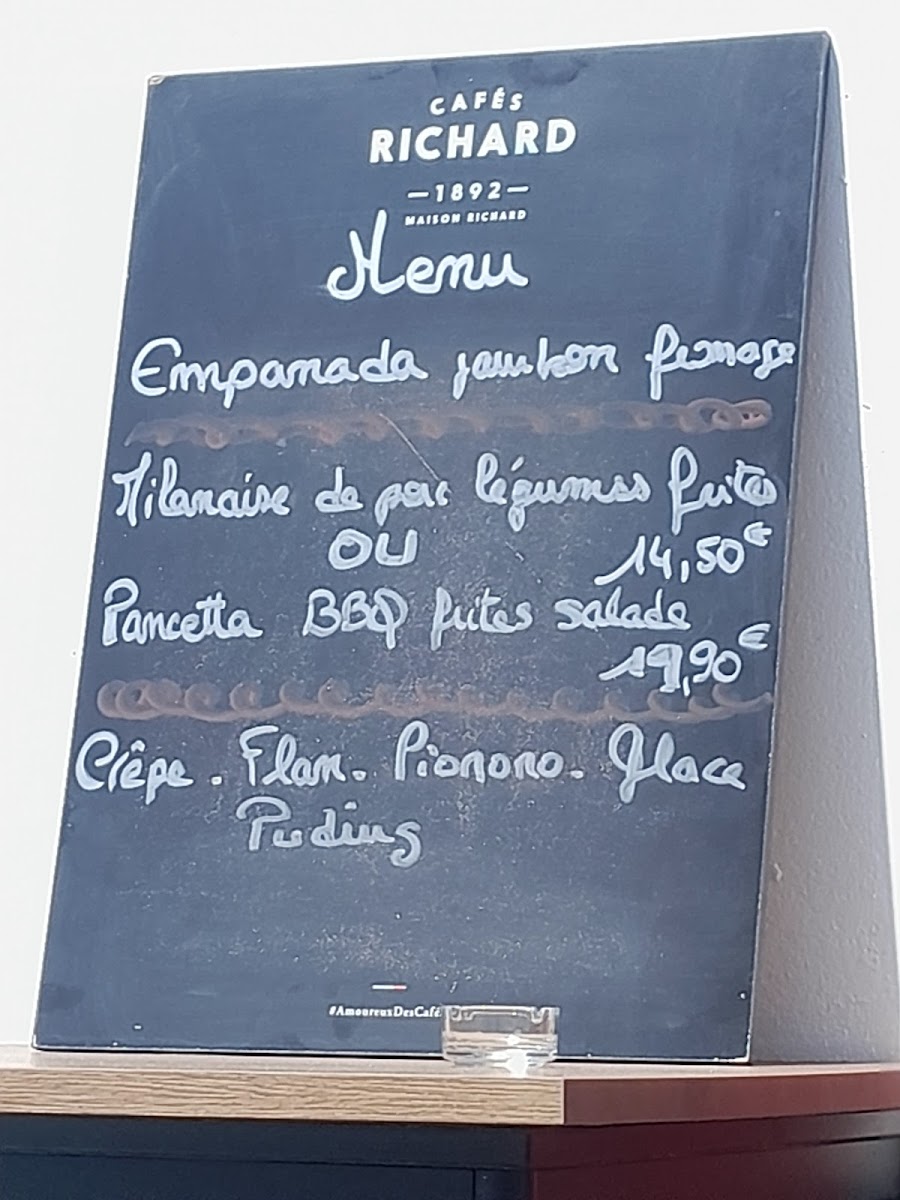 CAFÉS
RICHARD
—1892—
MAISON RICHARD
Menu
Empanada jambon fromage
Milanaise de porc légumes frites
OU 14,50€
Pancetta BBQ frites salade
19,90€
Crêpe . Flan . Pionono . Glace
Puding
#AmoureuxDesCafé